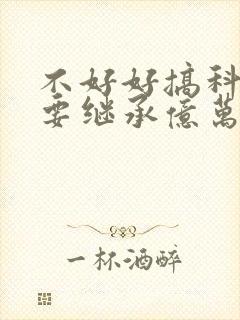 不好好搞科
要继承億萬
一杯酒醉